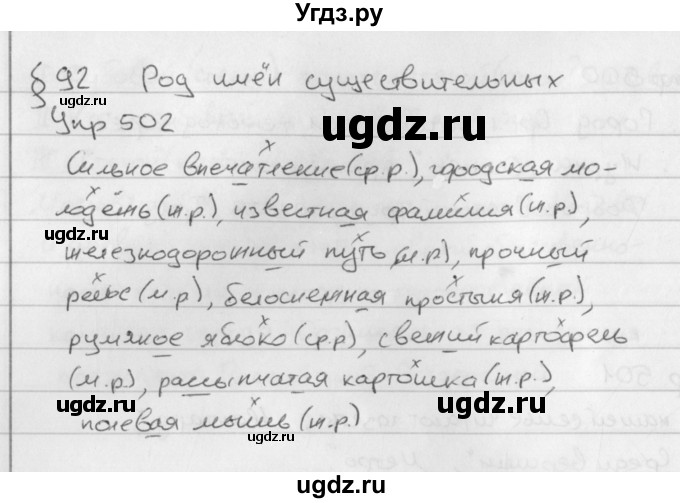 Угдз.ру
§ 92 Род имён существительных
ugdz.ru
Упр 502
ugdz.ru
Сильное впечатление (ср.р.), городская мо-
лодёжь (ж.р.), известная фамилия (ж.р.),
ugdz.ru
железнодорожный путь (м.р), прочный
рельс (м.р), белоснежная простыня (ж.р.),
румяное яблоко (ср.р), свежий картофель
(м.р), рассыпчатая картошка (ж.р.),
ugdz.ru
ugdz.ru
полевая мышь (ж.р.)
ugdz.ru
Угдз.ру